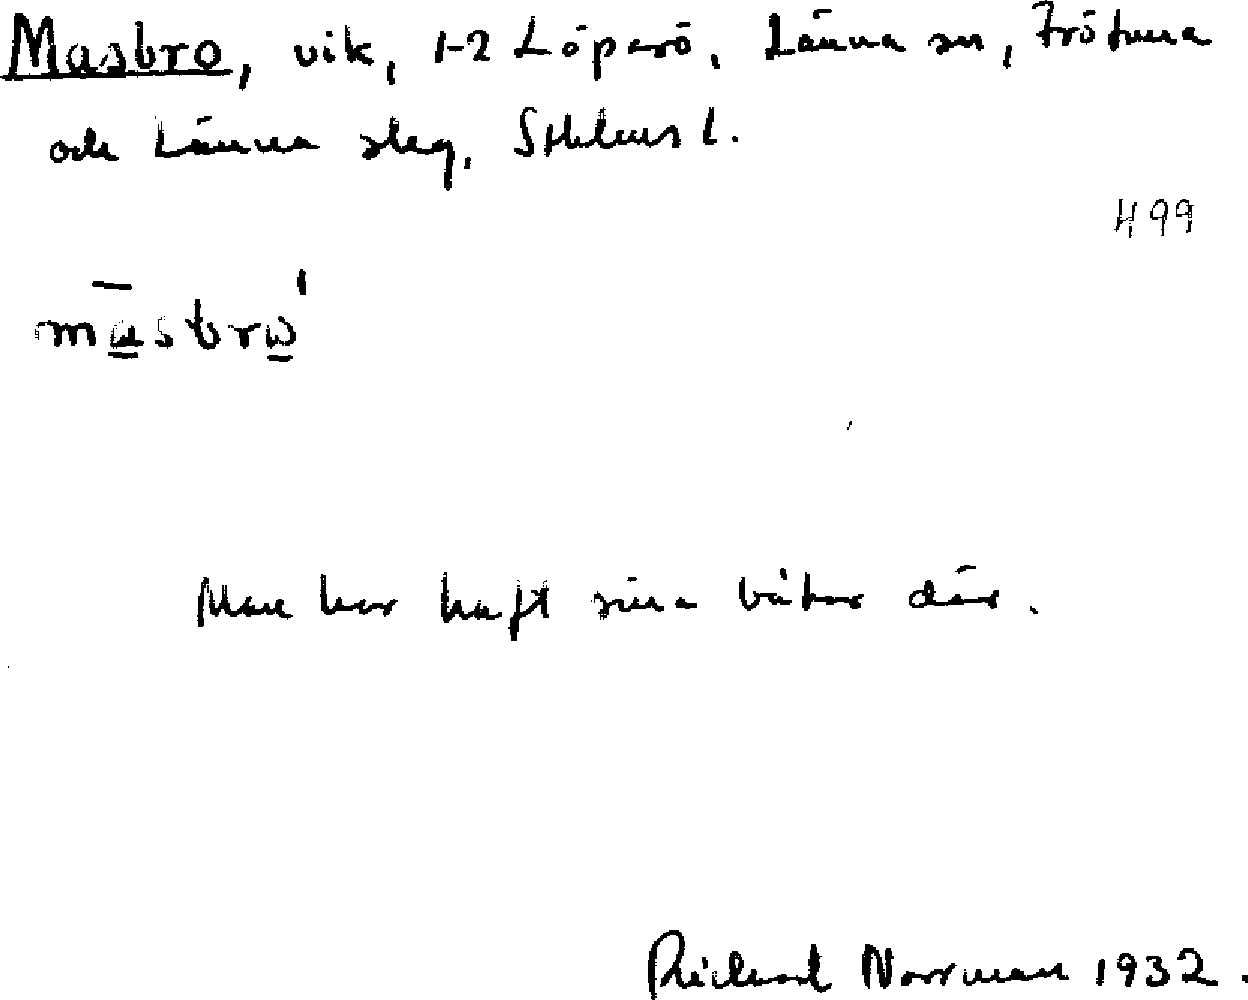 Masbro, vik, 1-2 Löparö, Länna sn, Frötuna
och Länna slag, Sthlms l.
499
māsbrω'
Man har haft sina båtar där.
Richard Norrman 1932.